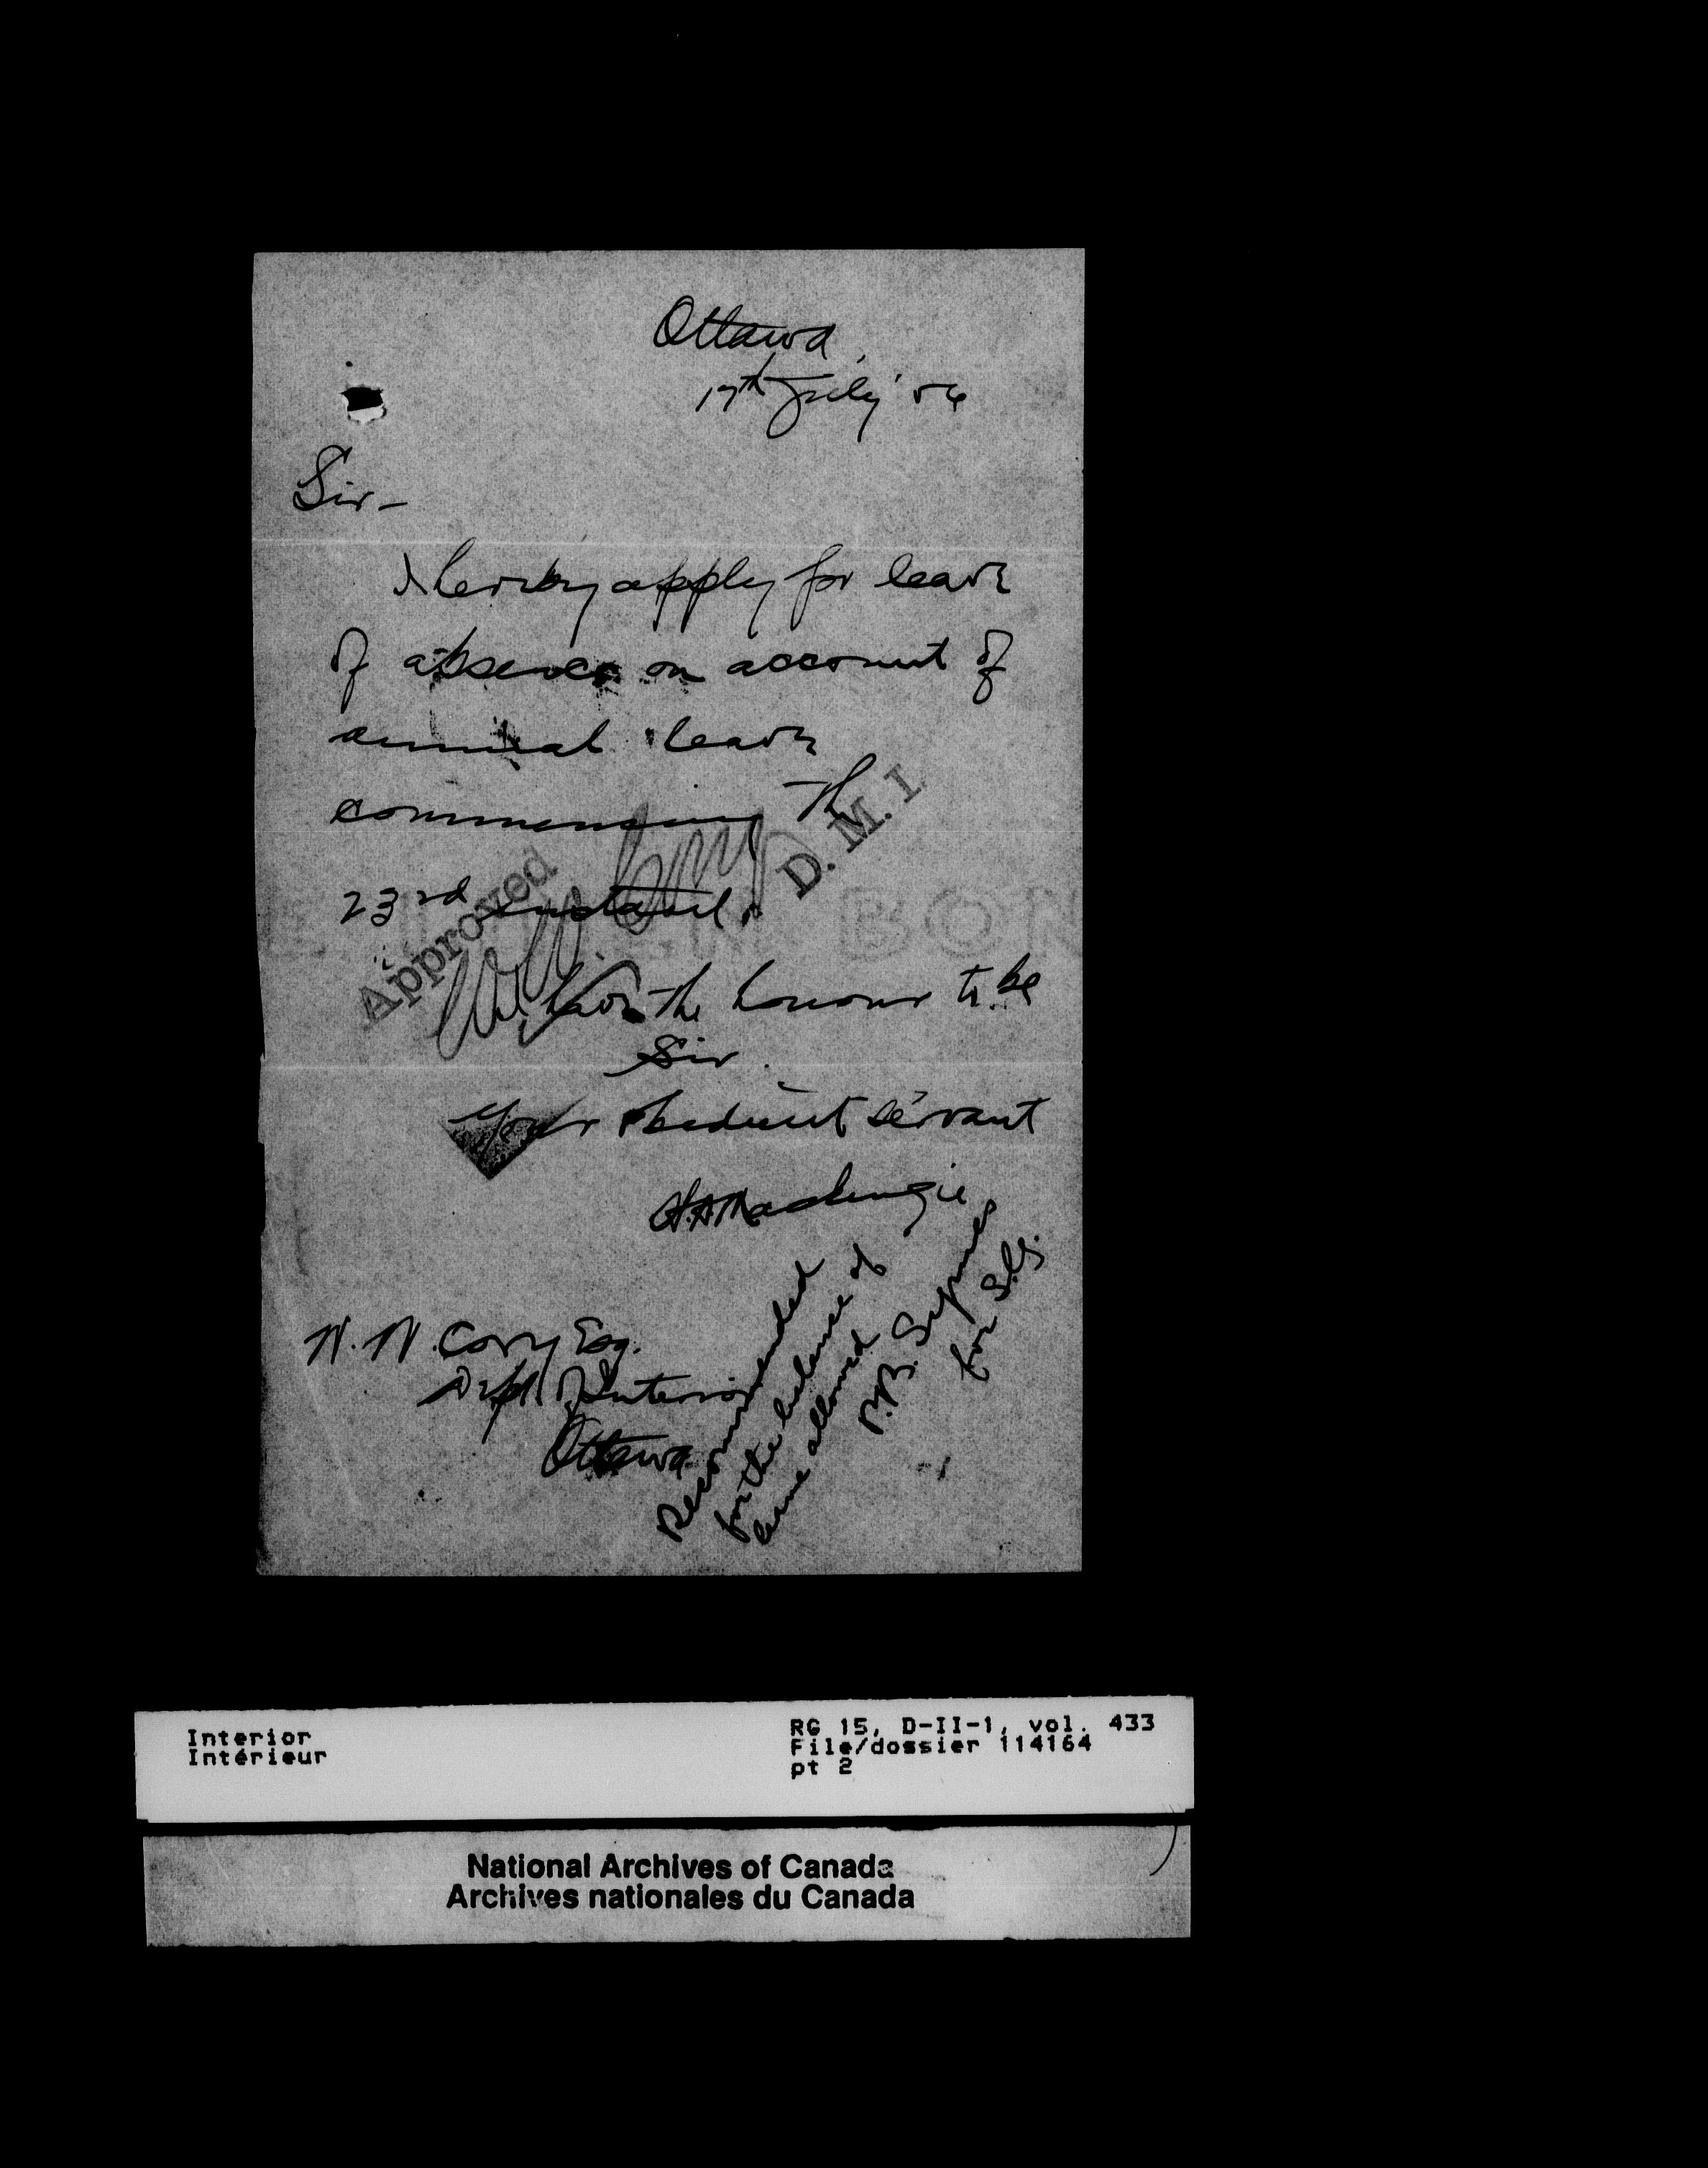 Ottawa,
17th July '06
Sir -
I hereby apply for leave
of absence on account of
annual leave
commencing the
23rd instant.
Approved
D. M. I.
BON
I have the honour to be
Sir.
Your obedient servant
Mackenzie
W. W. Cory Esq.
Dept. of Interior
Ottawa
Recommended
for the balance of
time allowed
P.B. Symes
for S.G.
Interior
Intérieur
RG 15, D-II-1, vol. 433
File/dossier 114164
pt 2
National Archives of Canada
Archives nationales du Canada